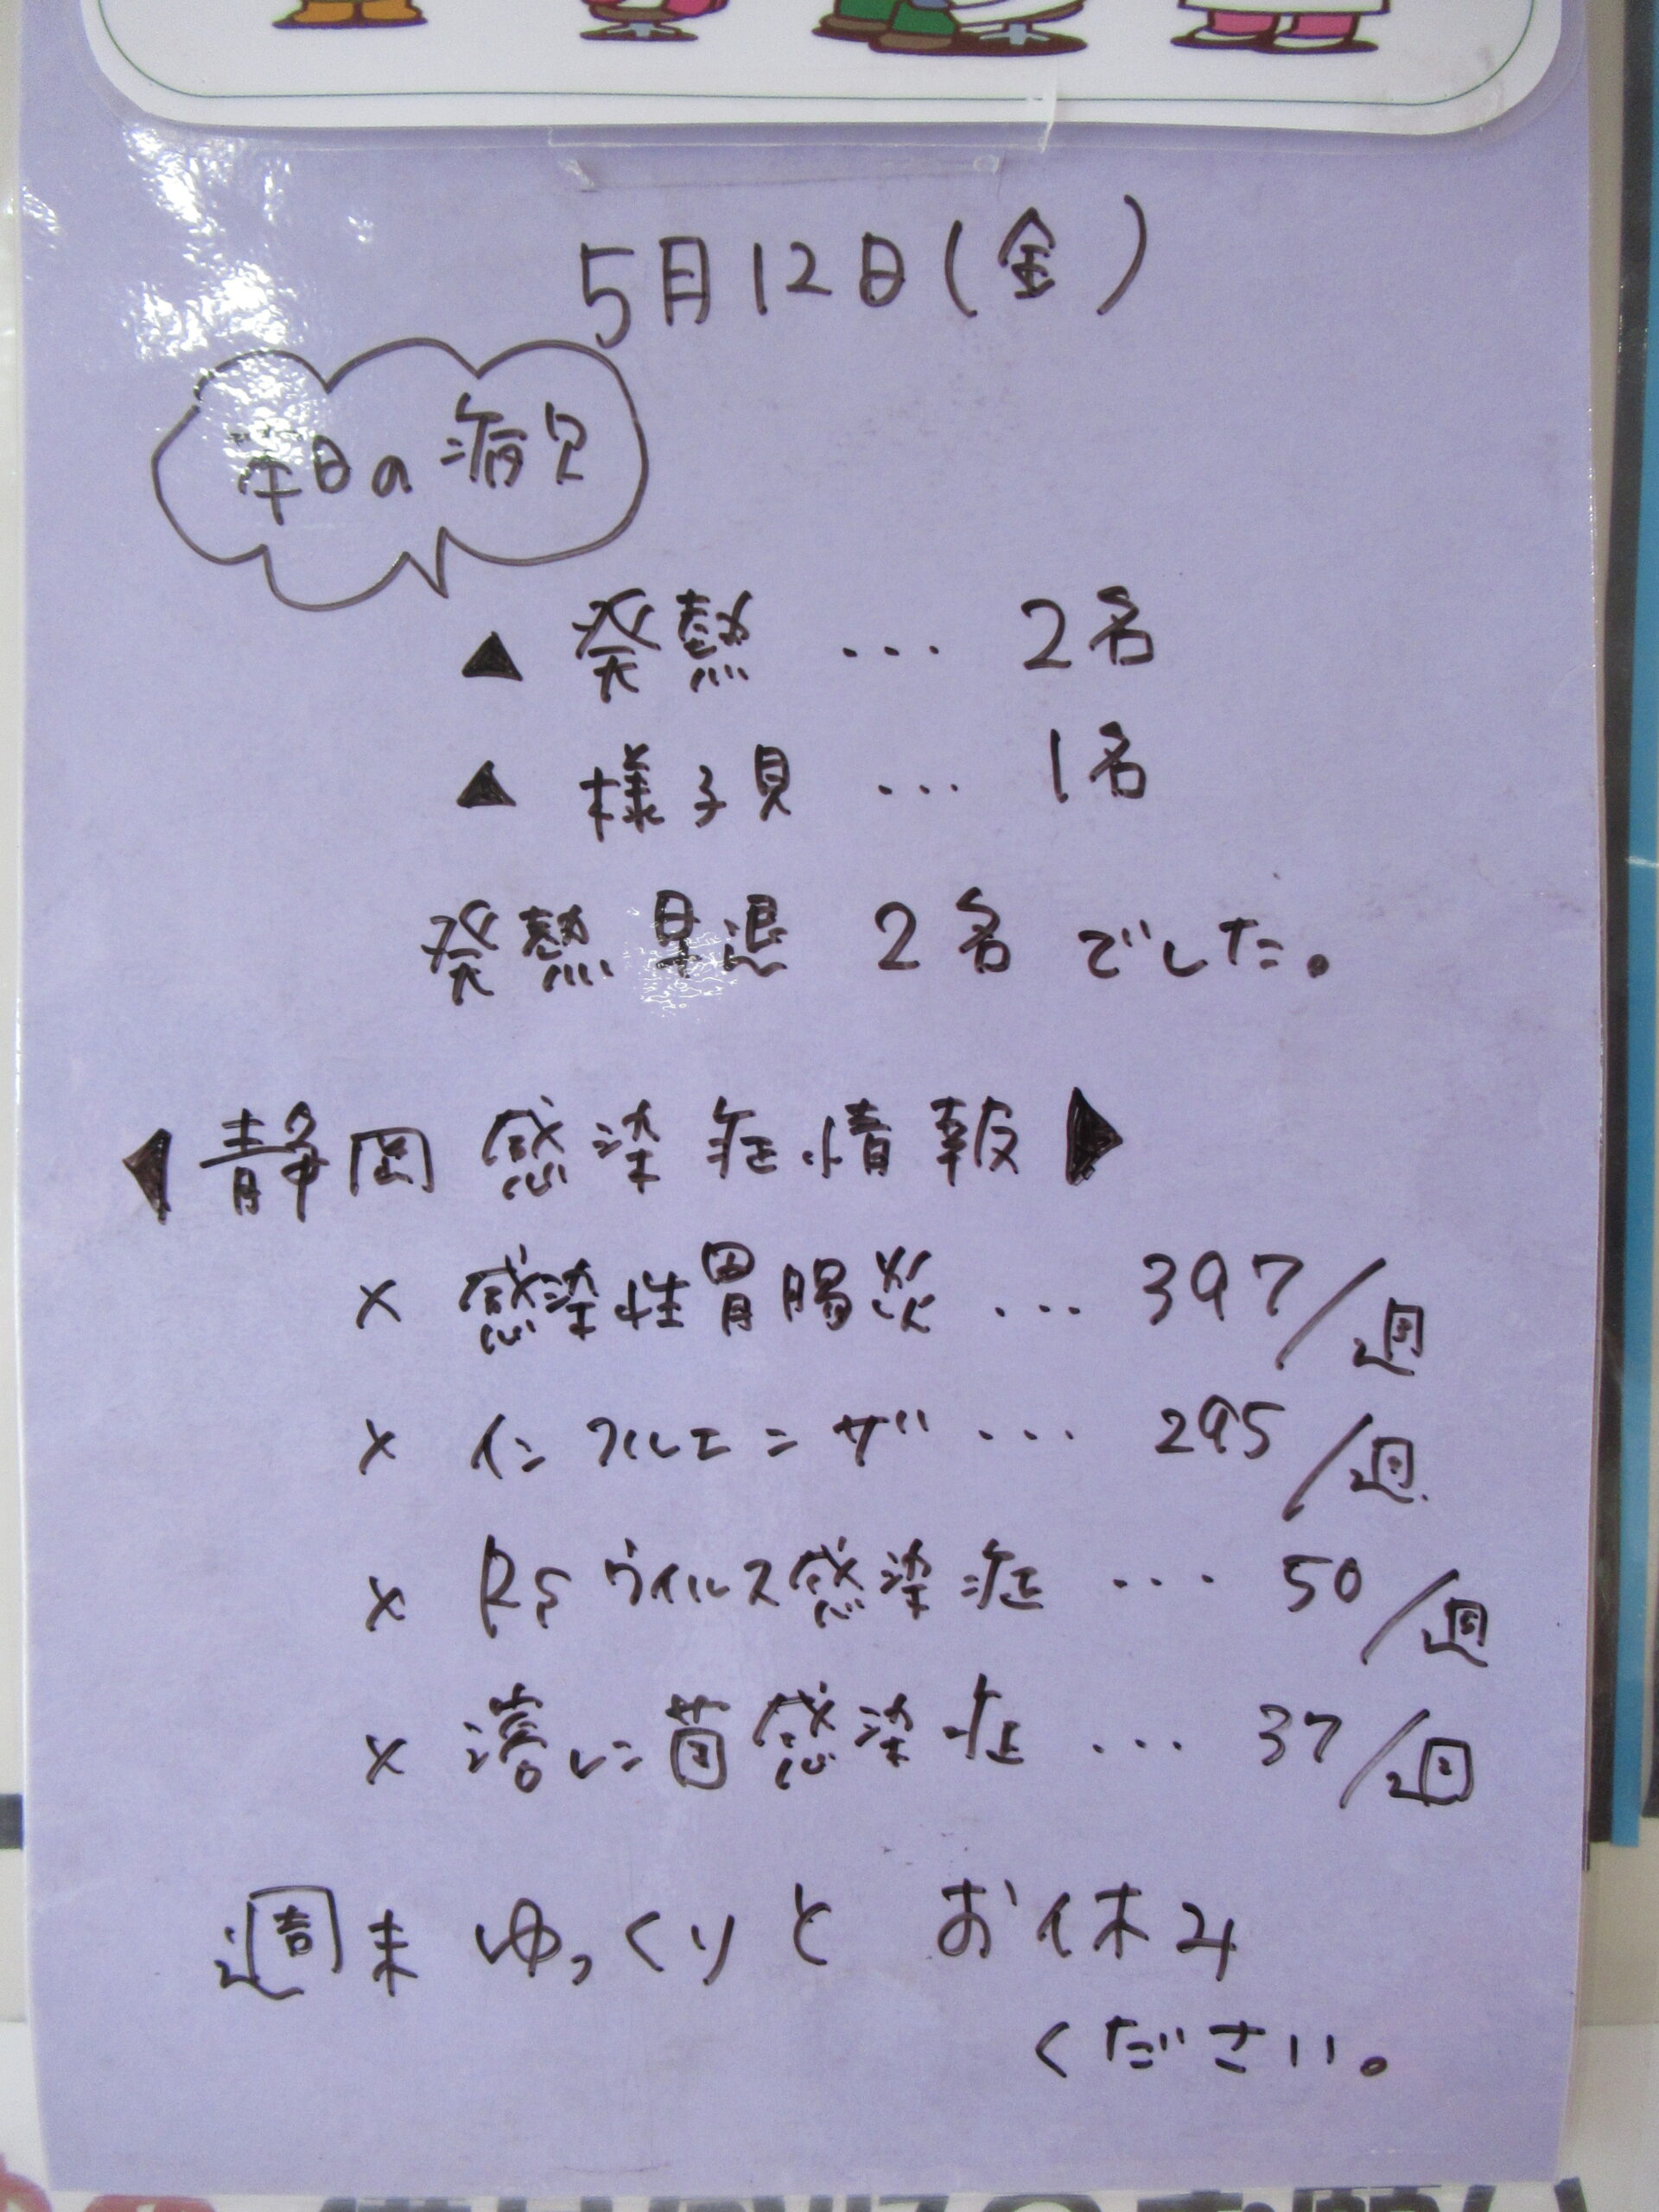 5月12日(金)
本日の病欠
▲ 発熱 … 2名
▲ 様子見 … 1名
発熱早退 2名でした。
◀静岡感染症情報▶
× 感染性胃腸炎 … 397/週
× インフルエンザ … 295/週
× RSウイルス感染症 … 50/週
× 溶レン菌感染症 … 37/週
週末ゆっくりとお休み
ください。